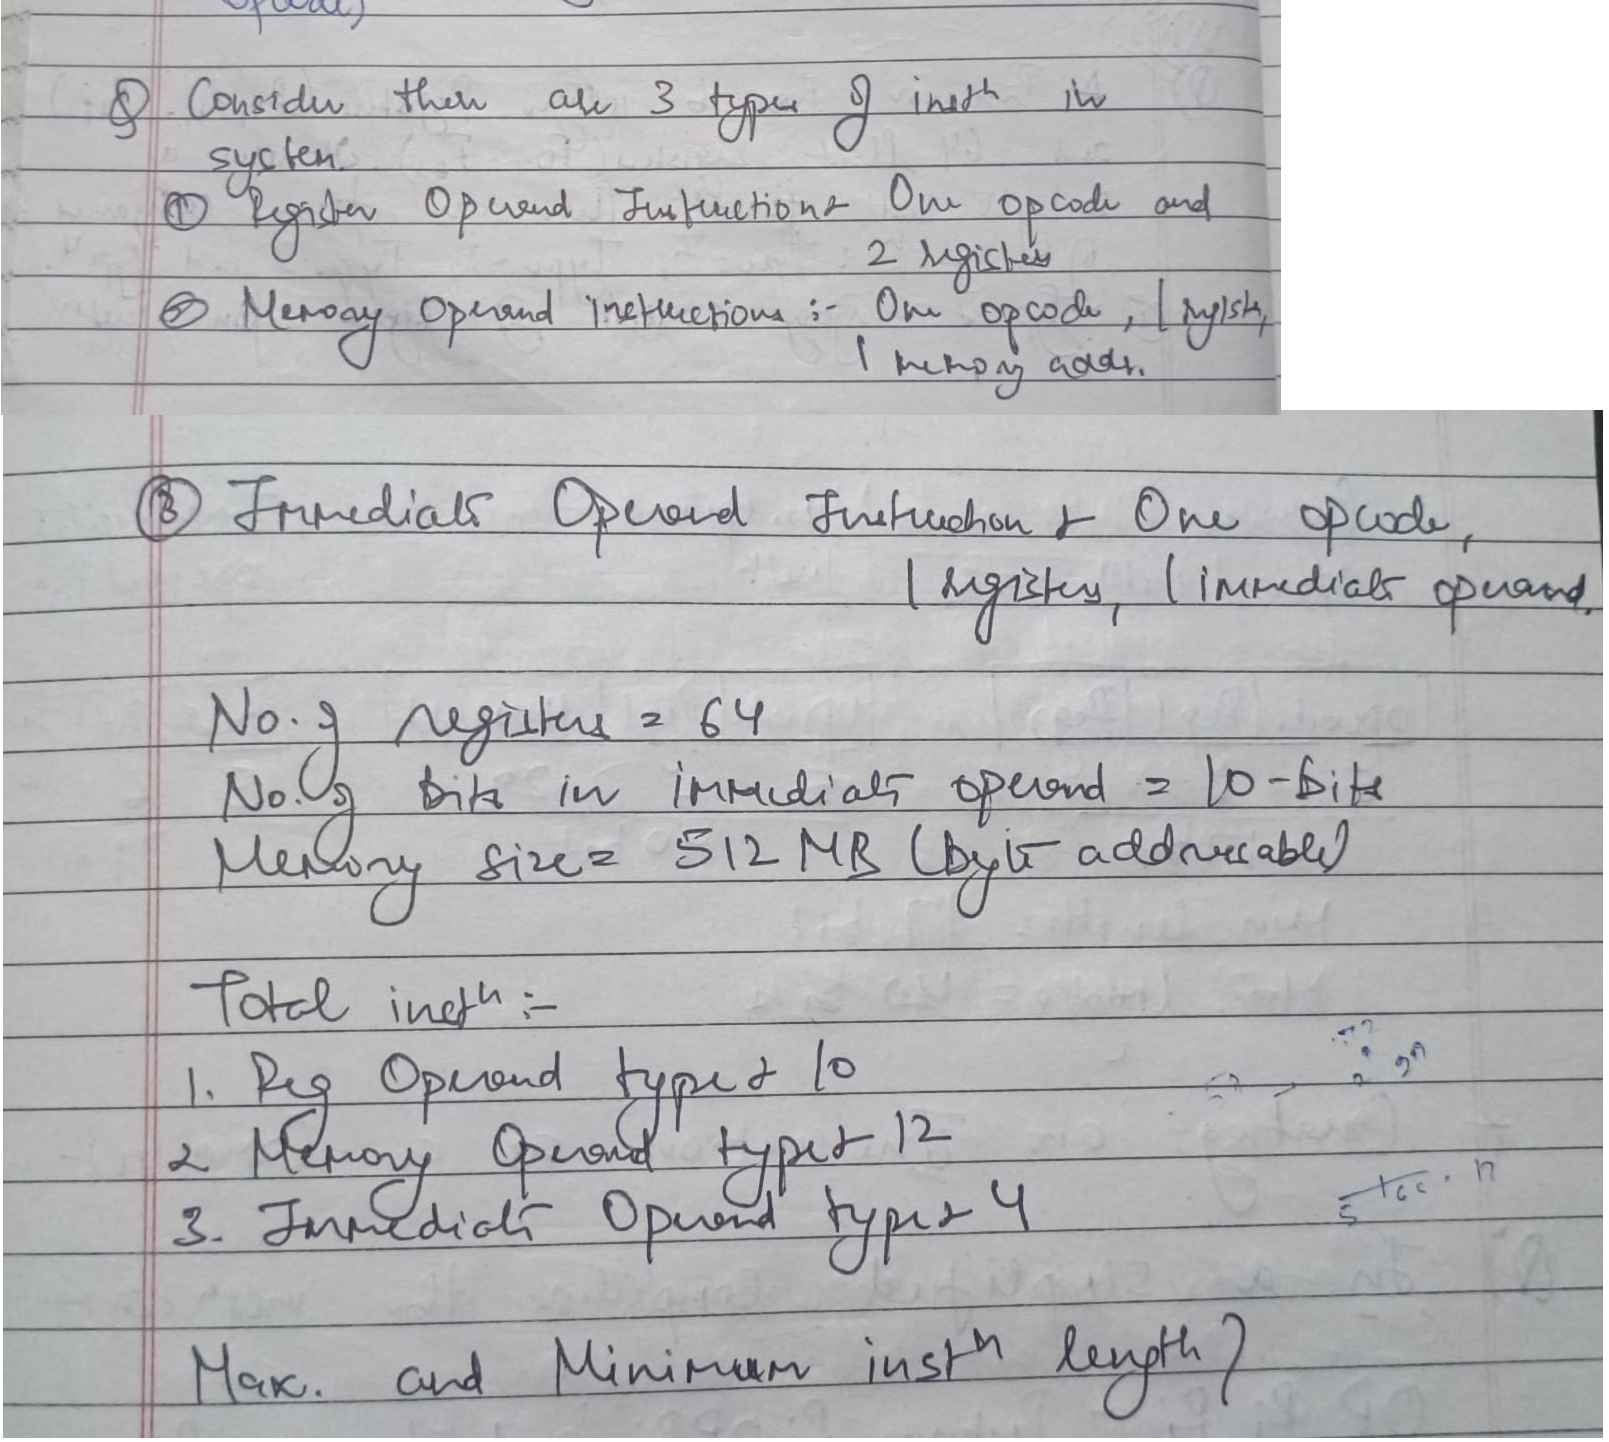 opcode)
Q Consider there are 3 types of instn in
system.
① Register Operand Instructions One opcode and
2 registers
② Memory Operand instructions :- One opcode, 1 register,
1 memory addr.
③ Immediate Operand Instruction One opcode,
1 registers, 1 immediate operand.
No. of registers = 64
No. of bits in immediate operand = 10-bits
Memory size = 512 MB (byte addressable)
Total instn :-
1. Reg Operand type 10
2 Memory Operand type 12
3. Immediate Operand type 4
Max. and Minimum instn length?